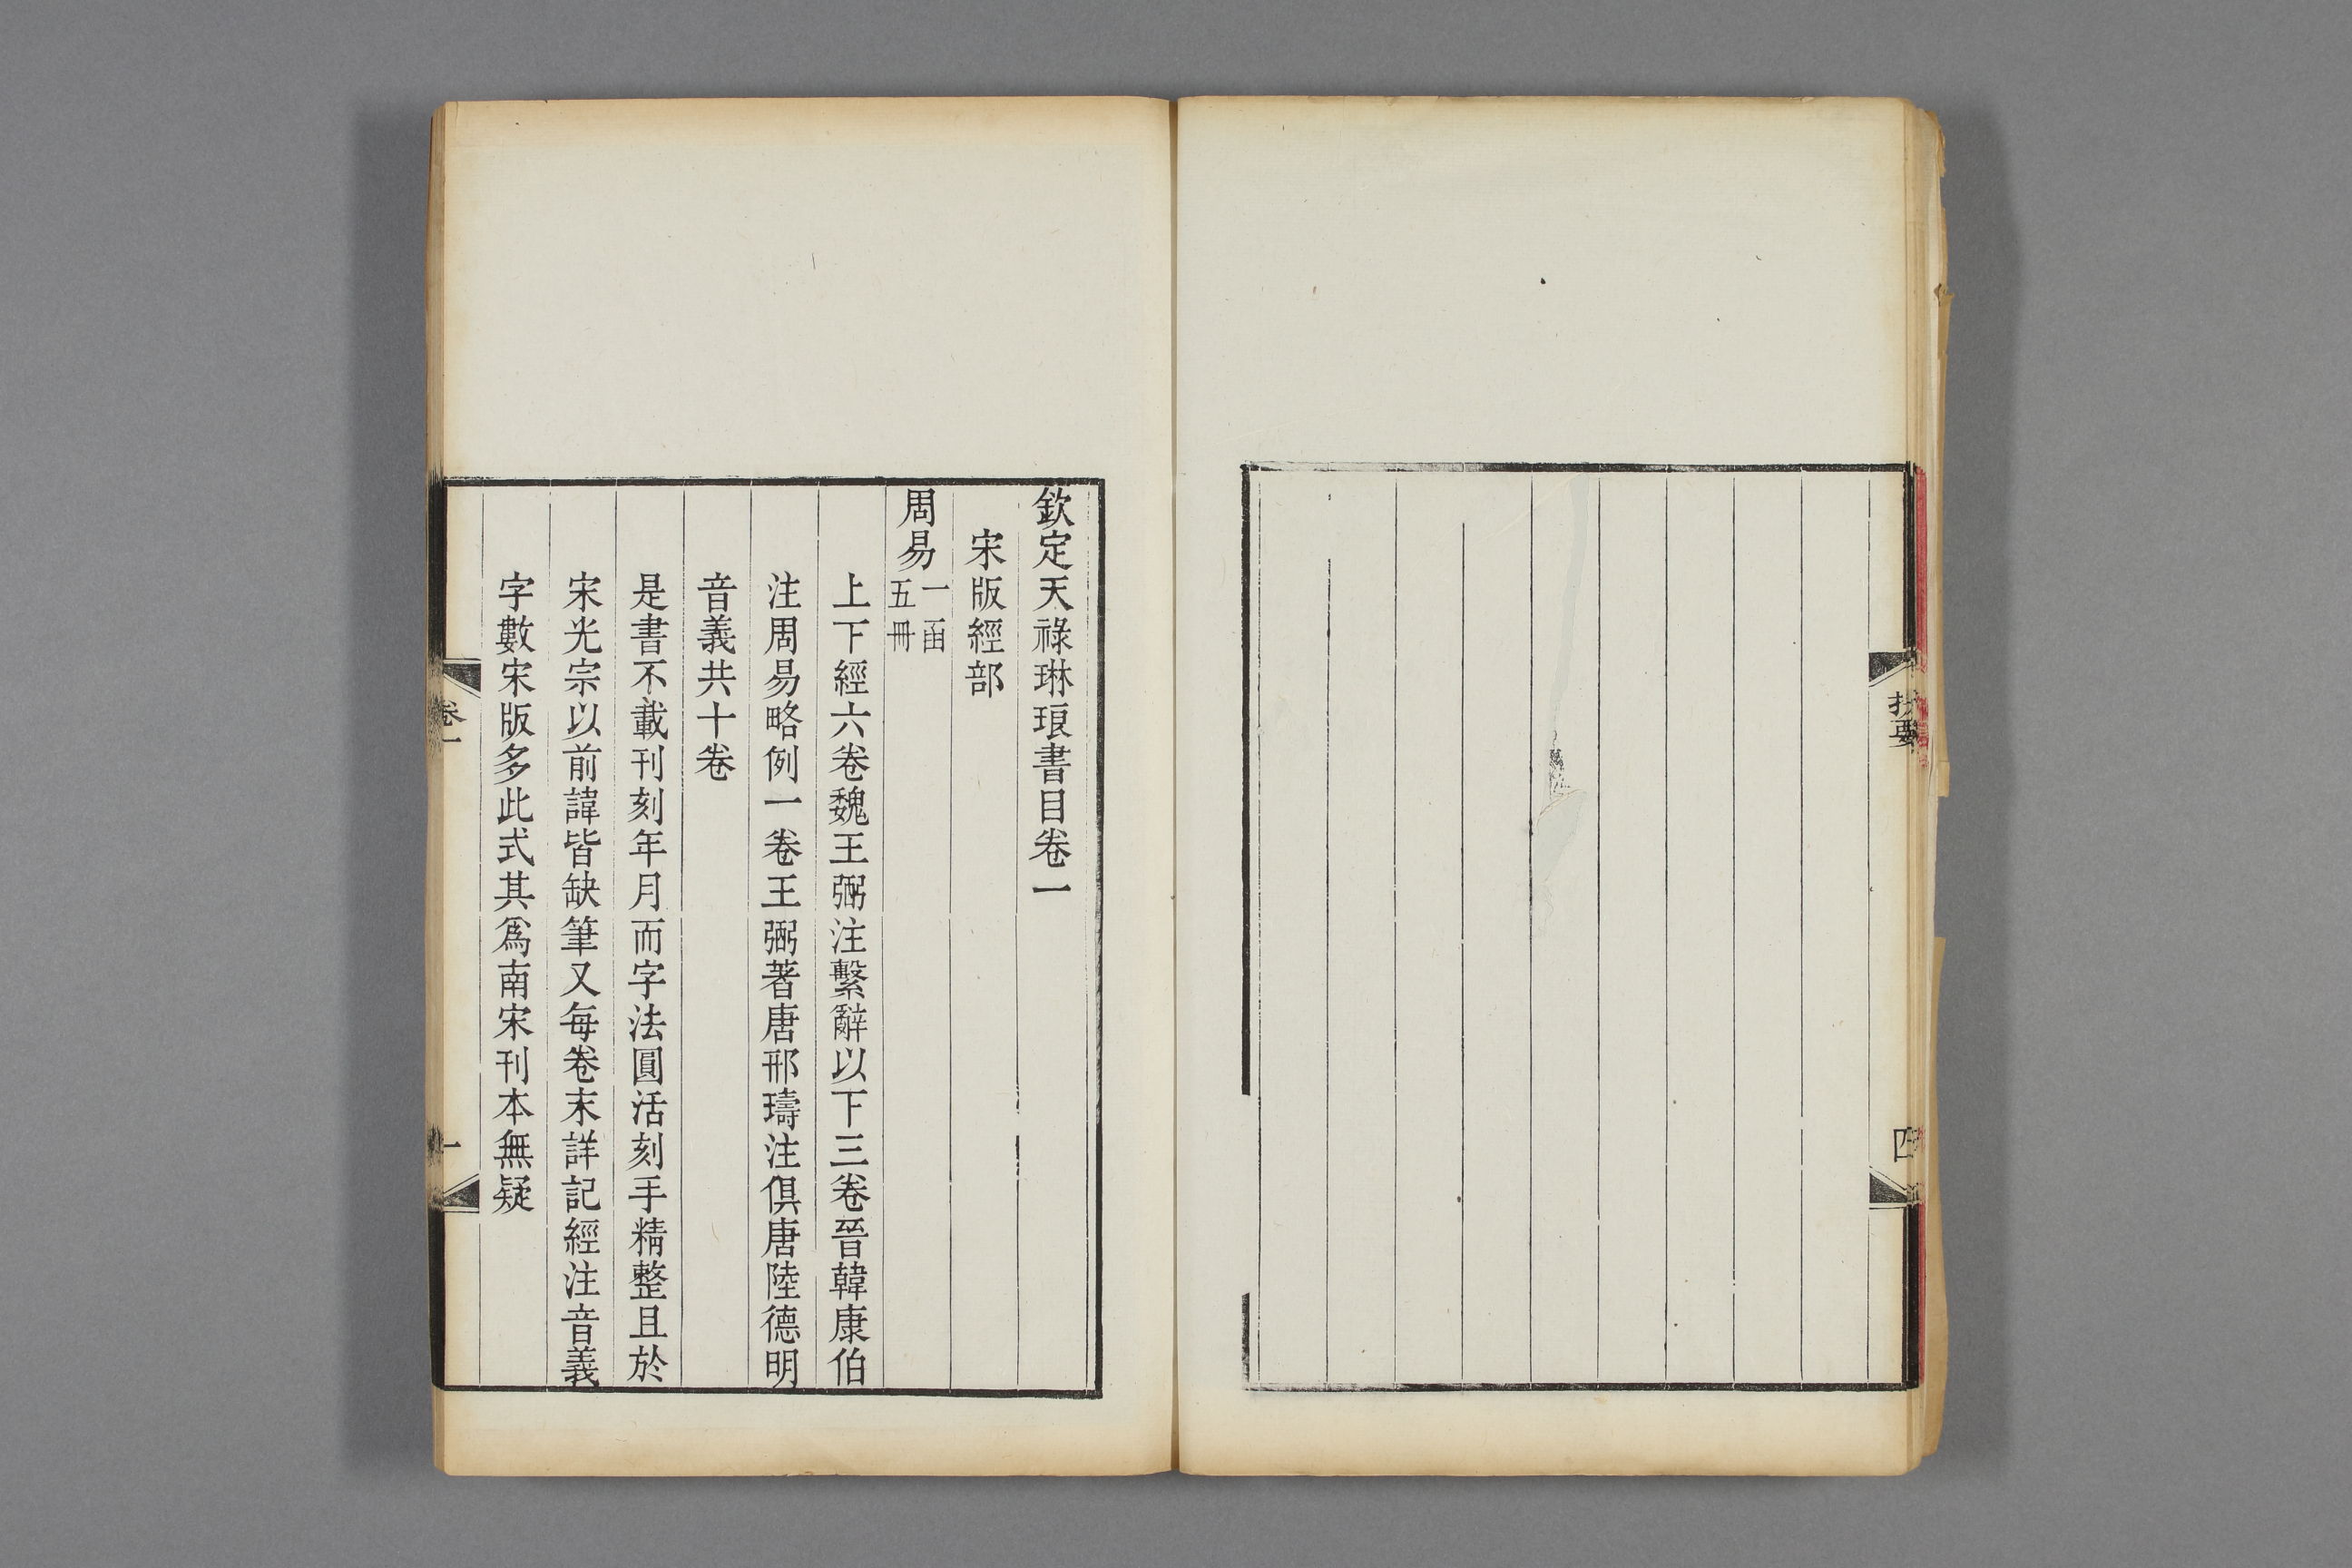 提要
四
欽定天祿琳琅書目卷一
宋版經部
周易一函
五冊
上下經六卷魏王弼注繫辭以下三卷晉韓康伯
注周易略例一卷王弼著唐邢璹注俱唐陸德明
音義共十卷
是書不載刊刻年月而字法圓活刻手精整且於
宋光宗以前諱皆缺筆又每卷末詳記經注音義
字數宋版多此式其爲南宋刊本無疑
卷一
一